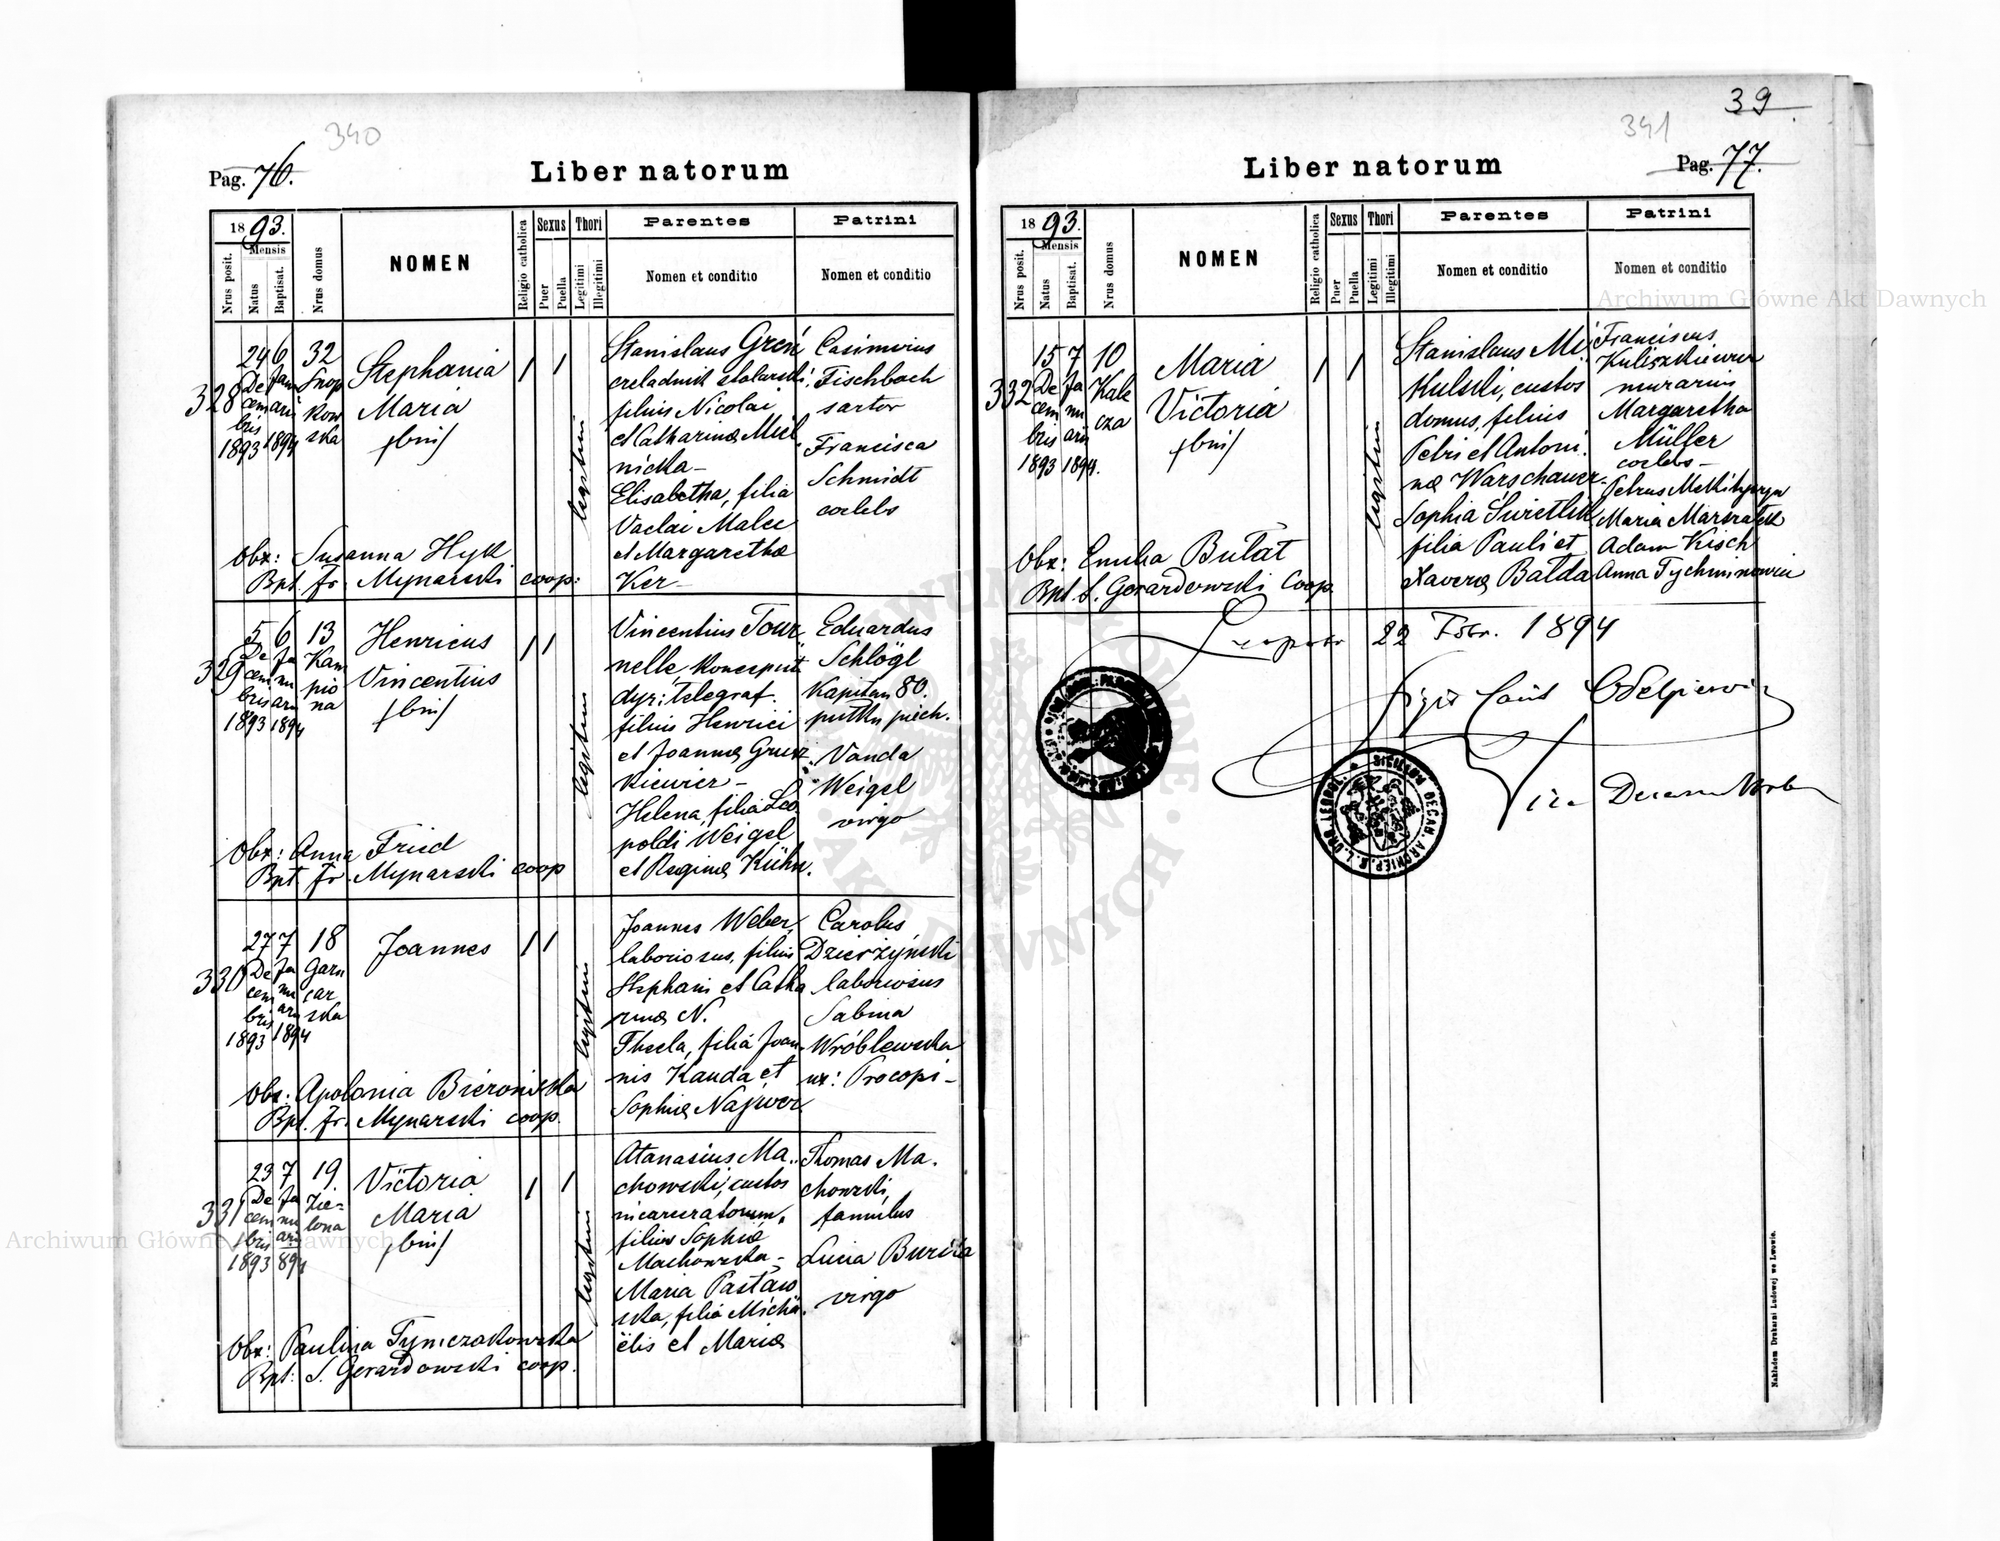 340
Pag. 76.
Liber natorum
1893.
Mensis
Nrus posit.
Natus
Baptisat.
Nrus domus
NOMEN
Religio catholica
Sexus
Puer
Puella
Thori
Legitimi
Illegitimi
Parentes
Nomen et conditio
Patrini
Nomen et conditio
328
24
De
cem
bris
1893
6
Jan
arii
1894
32
Snop
kow
ska
Stephania
Maria
/bin/
1 1
legitimi
Stanislaus
czeladnik stolarski,
filius Nicolai
et Catharinæ Miel
nicka —
Elisabetha, filia
Vaclai Malec
et Margarethæ
Ker —
Casimirus
Fischbach
sartor
Francisca
Schmidt
coelebs
Obx: Susanna Hyk
Bpt. fr. Mynarski coop:
329
5
De
cem
bris
1893
6
Ja
nu
arii
1894
13
Kam
pio
na
Henricus
Vincentius
/bin/
1 1
legitimi
Vincentius Tour
nelle koncepist
dyr: telegraf.
filius Henrici
et Joannæ Grusz
kiewicz —
Helena, filia Leo
poldi Weigel
et Reginæ Kühn.
Eduardus
Schlögl
Kapitan 80.
pułku piech.
Vanda
Weigel
virgo
Obx: Anna Fried
Bpt. fr. Mynarski coop
330
27
De
cem
bris
1893
7
Ja
nu
arii
1894
18
Garn
car
ska
Joannes
1 1
legitimi
Joannes Weber,
laboriosus, filius
Stephani et Catha
rinæ N.
Thecla, filia Joan
nis Kauda et
Sophiæ Najwer
Carolus
Dzierżyński
laboriosus
Sabina
Wróblewska
ux: Procopi —
Obx: Apolonia
Bpt. fr. Mynarski coop.
331
23
De
cem
bris
1893
7
Ja
nu
arii
894
19.
Zie=
lona
Victoria
Maria
/bin/
1 1
legitimi
Atanasius Ma..
chowski, custos
incarceratorum,
filius Sophiæ
Machowska —
Maria Pastaw
ska, filia Micha
ëlis et Mariæ
Thomas Ma.
chowski,
famulus
Lucia
virgo
Obx: Paulina Tymczakowska
Bpt: S. Gerardowski coop.
39
341
Liber natorum
Pag. 77.
1893.
Mensis
Nrus posit.
Natus
Baptisat.
Nrus domus
NOMEN
Religio catholica
Sexus
Puer
Puella
Thori
Legitimi
Illegitimi
Parentes
Nomen et conditio
Patrini
Nomen et conditio
332
15
De
cem
bris
1893
7
Ja
nu
arii
1894.
10
Kale
cza
Maria
Victoria
/bin/
1 1
legitimi
Stanislaus Mi
kulski, custos
domus, filius
Petri et Antoni.
næ Warschauer
Sophia Świetlik
filia Pauli et
Xaveræ Bałda
Franciscus
Kuliszkiewicz
murarius
Margaretha
Müller
coelebs —
Petrus
Maria Marszałek
Adam Kisch
Anna
Obx: Emilia Bułat
Bpt. S. Gerardowski Coop.
22 Febr. 1894
Archiwum Główne Akt Dawnych
Archiwum Główne Akt Dawnych
ARCHIWUM GŁÓWNE AKT DAWNYCH
Nakładem Drukarni Ludowej we Lwowie.